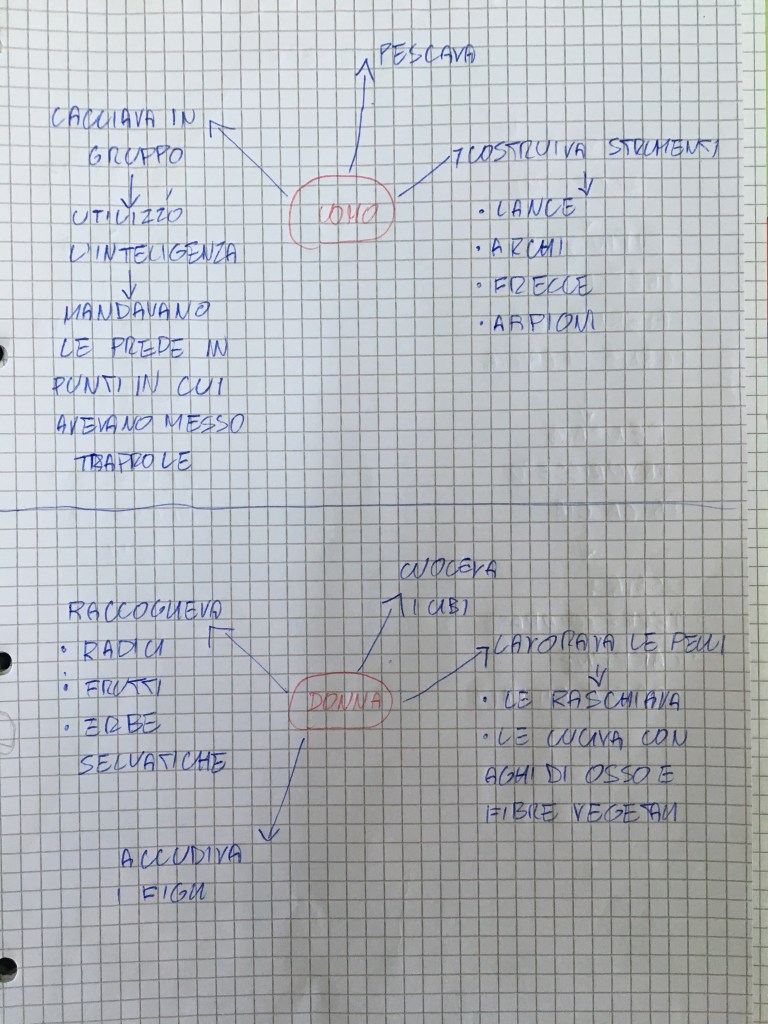 PESCAVA
CACCIAVA IN
GRUPPO
UTILIZZÓ
L'INTELIGENZA
MANDAVANO
LE PREDE IN
PUNTI IN CUI
AVEVANO MESSO
TRAPROLE
UOMO
COSTRUIVA STRUMENTI
• LANCE
• ARCHI
• FRECCE
• ARPIONI
CUOCEVA
I CIBI
RACCOGLIEVA
• RADICI
• FRUTTI
• ERBE
SELVATICHE
DONNA
LAVORAVA LE PELLI
• LE RASCHIAVA
• LE CUCIVA CON
AGHI DI OSSO E
FIBRE VEGETALI
ACCUDIVA
I FIGLI